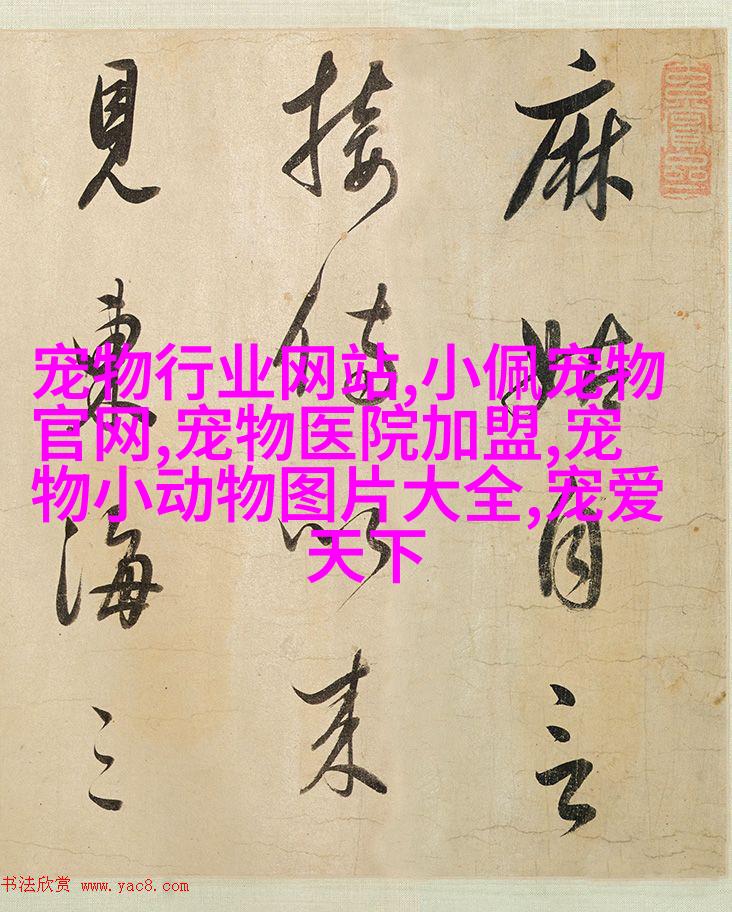 麻姑自言
接侍以来
見東海三
宠物行业网站,小佩宠物
官网,宠物医院加盟,宠
物小动物图片大全,宠爱
天下
书法欣赏 www.yac8.com